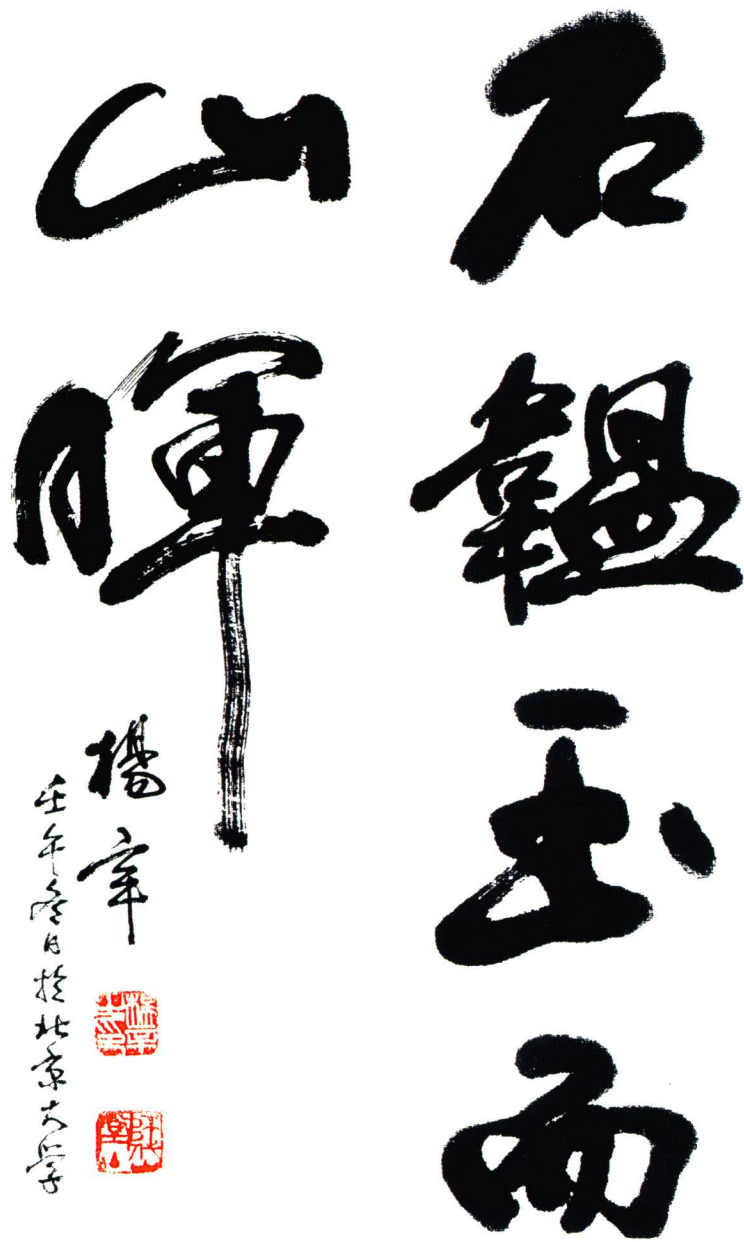 石韞玉而
山暉
楊辛
壬午冬日於北京大學